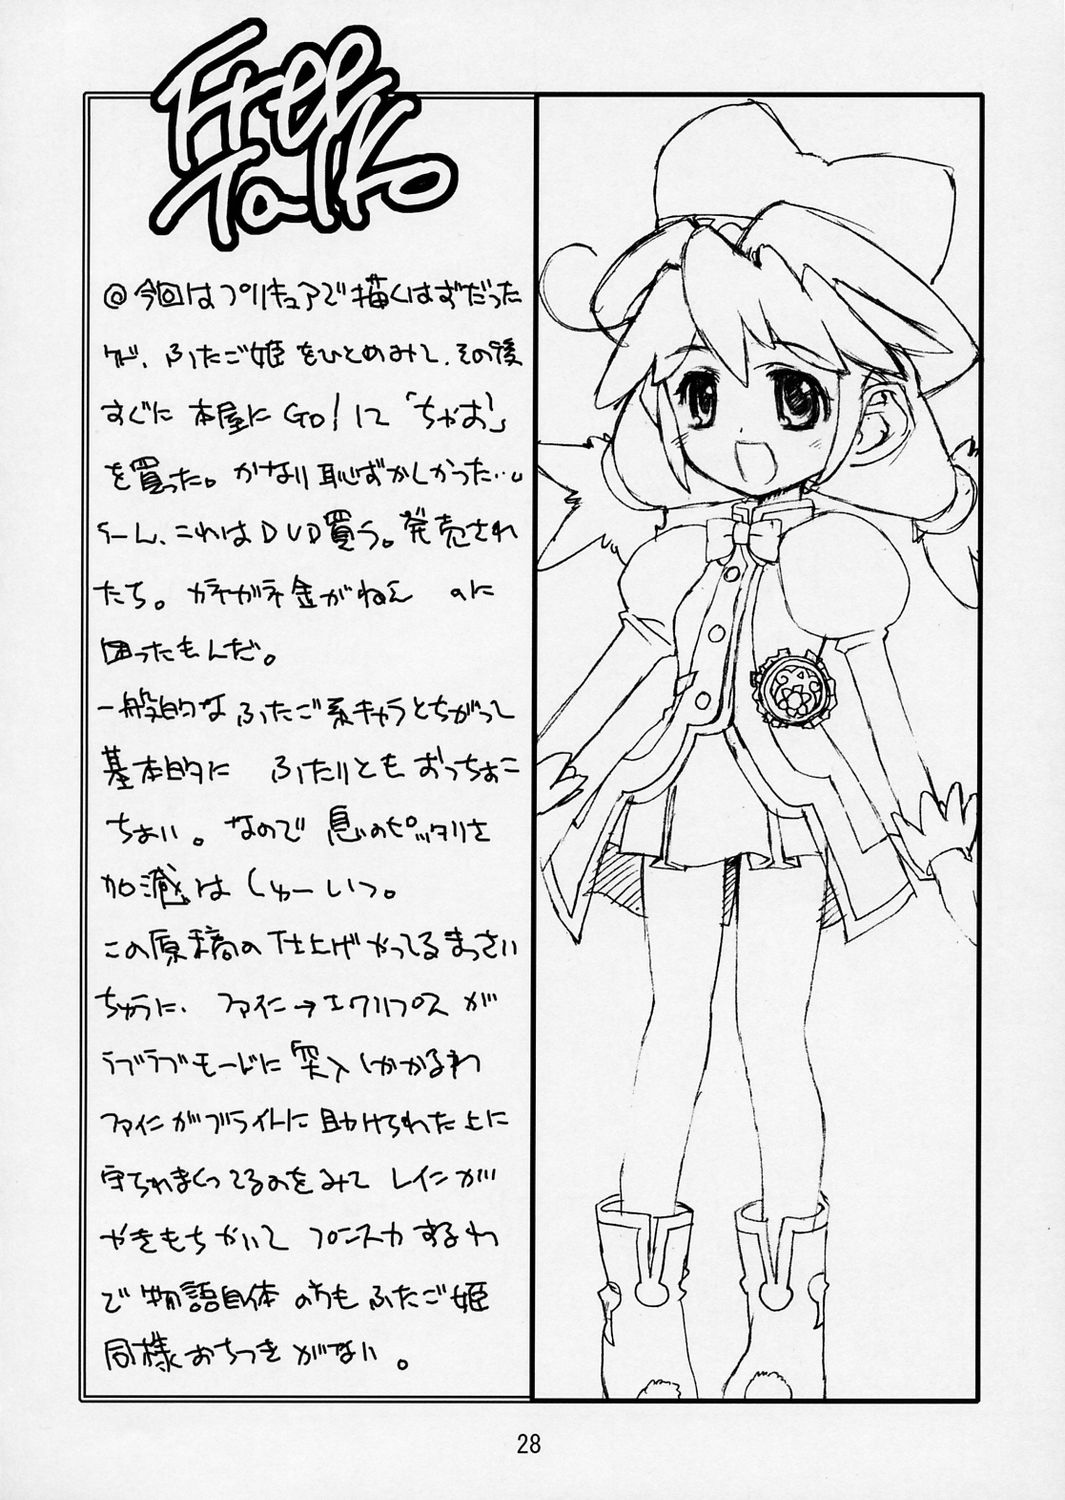 Free
Talk
@今回はプリキュアで描くはずだった
ケド、ふたご姫をひとめみて、その後
すぐに本屋にGO!して「ちゃお」
を買った。かなり恥ずかしかった…。
うーん、これはDVD買う。発売され
たち。ガネガネ金がねえ のに
困ったもんだ。
一般的なふたご系キャラとちがって
基本的に ふたりともおっちょこ
ちょい。なので 息のピッタリさ
加減はしゅーいつ。
この原稿の仕上げやってるまっさい
ちゅうに、ファイン→エクリプスが
ラブラブモードに突入しかかるわ
ファインがブライトに助けられた上に
守られまくってるのをみてレインが
やきもちやいてプンスカするわ
で物語自体のうもふたご姫
同様おちつきがない。
28